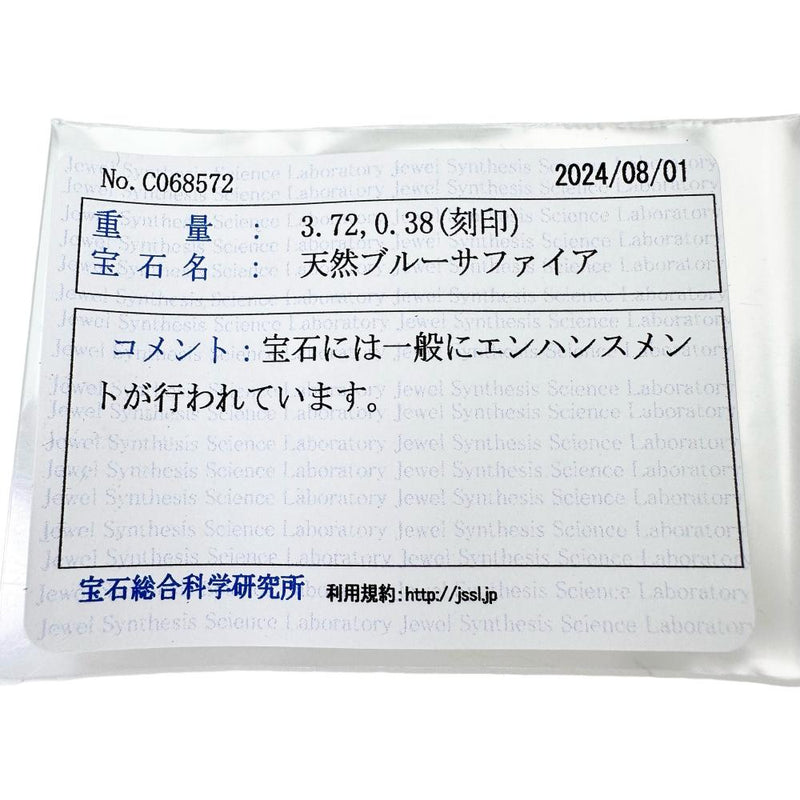 No. C068572
2024/08/01
重量 : 3.72,0.38(刻印)
宝石名 : 天然ブルーサファイア
コメント:宝石には一般にエンハンスメン
トが行われています。
宝石総合科学研究所 利用規約:http://jssl.jp
Jewel Synthesis Science Laboratory